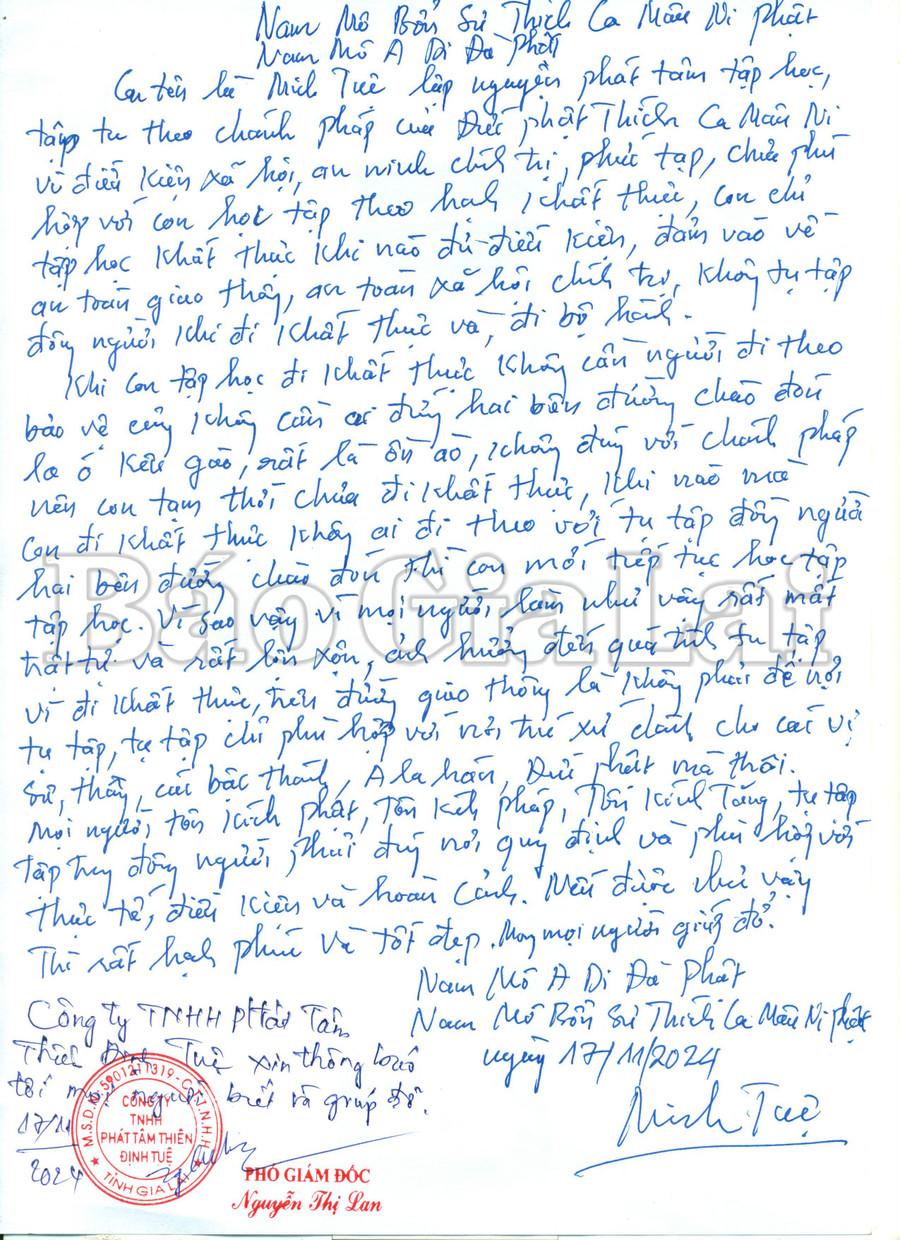 Nam Mô Bổn Sư Thích Ca Mâu Ni Phật
Nam Mô A Di Đà Phật
Con tên là Minh Tuệ lập nguyện phát tâm tập học,
tập tu theo chánh pháp của Đức phật Thích Ca Mâu Ni
vì điều kiện xã hội, an ninh chính trị, phức tạp, chưa phù
hợp với con học tập theo hạnh khất thực, con chỉ
tập học khất thực khi nào đủ điều kiện, đảm vảo về
an toàn giao thông, an toàn xã hội chính trị, không tụ tập
đông người khi đi khất thực và, đi bộ hành.
Khi con tập học đi khất thực không cần người đi theo
bảo vệ cũng không cần ai đứng hai bên đường chào đón
la ó kêu gào, rất là ồn ào, không đúng với chánh pháp
nên con tạm thời chưa đi khất thực, khi nào mà
con đi khất thực không ai đi theo với tụ tập đông người
hai bên đường chào đón thì con mới tiếp tục học tập
tập học. Vì sao vậy vì mọi người làm như vậy rất mất
trật tự và rất lộn xộn, ảnh hưởng đến quá trình tu tập
vì đi khất thực, trên đường giao thông là không phải để nơi
tụ tập, tụ tập chỉ phù hợp với nơi trú xứ dành cho các vị
sư, thầy, các bậc thánh, A la hán, Đức phật mà thôi.
Mọi người tôn kính phật, Tôn kính pháp, Tôn kính Tăng, tụ tập
tập trung đông người phải đúng nơi quy định và phù hợp với
thực tế, điều kiện và hoàn cảnh. Nếu được như vậy
Thì rất hạnh phúc và tốt đẹp. Mong mọi người giúp đỡ.
Nam Mô A Di Đà Phật
Nam Mô Bổn Sư Thích Ca Mâu Ni phật
ngày 17/11/2024
Minh Tuệ
Công ty TNHH Phát Tâm
Thiên Định Tuệ xin thông báo
tới mọi người biết và giúp đỡ.
17/11
2024
M.S.D.N: 5901211319-C.T.T.N.H.H
CÔNG TY
TNHH
PHÁT TÂM THIÊN
ĐỊNH TUỆ
TỈNH GIA LAI
PHÓ GIÁM ĐỐC
Nguyễn Thị Lan
Báo Gia Lai